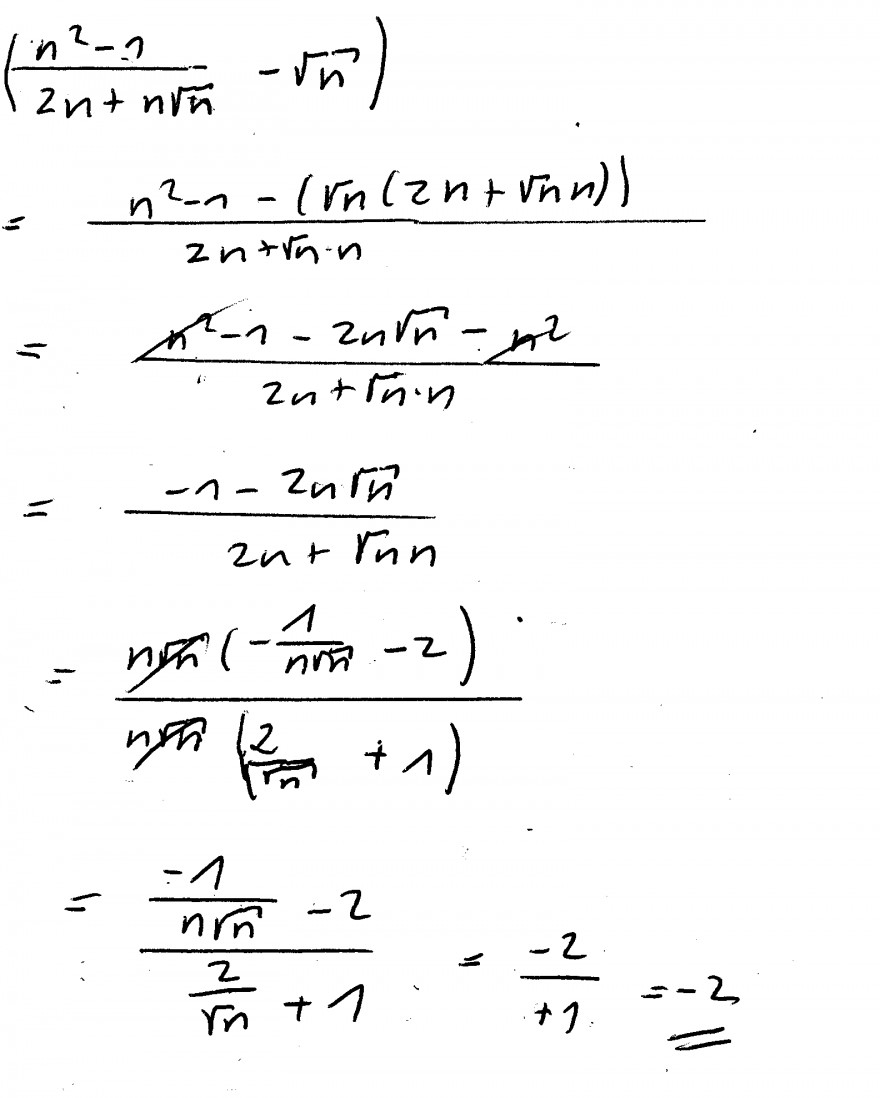 (n²-1 / 2n+n√n - √n)
= n²-1 - (√n(2n+√n n)) / 2n+√n·n
= n²-1 - 2n√n - n² / 2n+√n·n
= -1 - 2n√n / 2n+√n n
= n√n(-1/n√n - 2) / n√n(2/√n + 1)
= -1/n√n - 2 / 2/√n + 1 = -2/+1 = -2